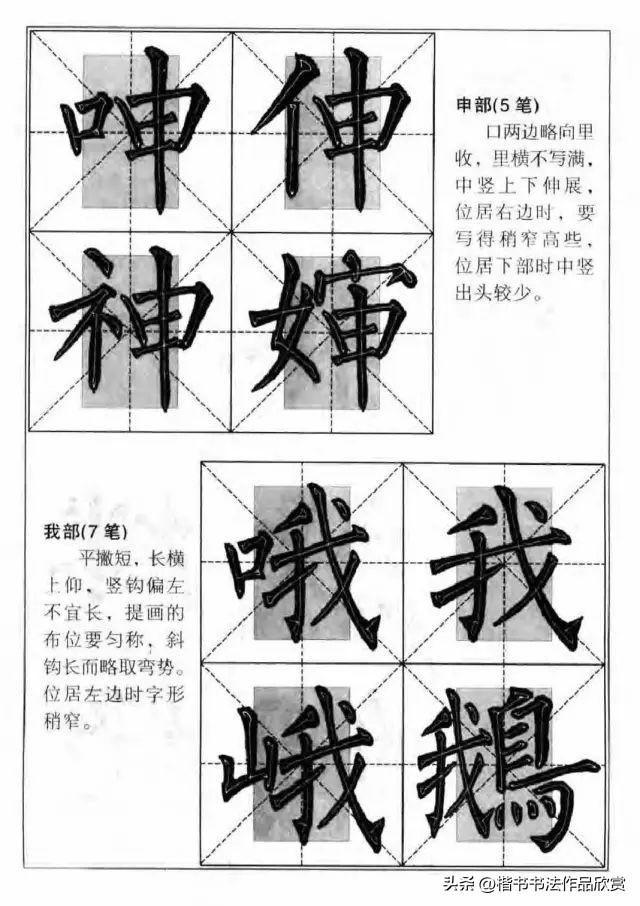 呻 伸
神 婶
申部(5笔)
口两边略向里
收，里横不写满，
中竖上下伸展，
位居右边时，要
写得稍窄高些，
位居下部时中竖
出头较少。
我部(7笔)
平撇短，长横
上仰，竖钩偏左
不宜长，提画的
布位要匀称，斜
钩长而略取弯势。
位居左边时字形
稍窄。
哦 我
峨 鵝
头条 @楷书书法作品欣赏